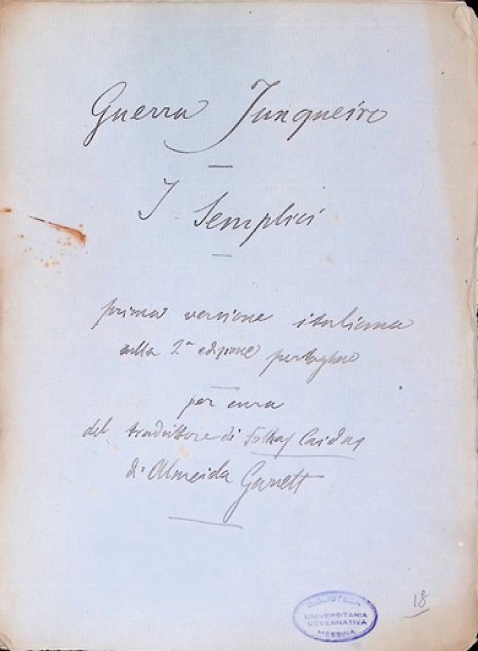 Guerra Junqueiro
I Semplici
prima versione italiana
sulla 2ª edizione portoghese
per cura
del traduttore di Folhas Caidas
di Almeida Garrett
BIBLIOTECA
UNIVERSITARIA
GOVERNATIVA
MESSINA
18